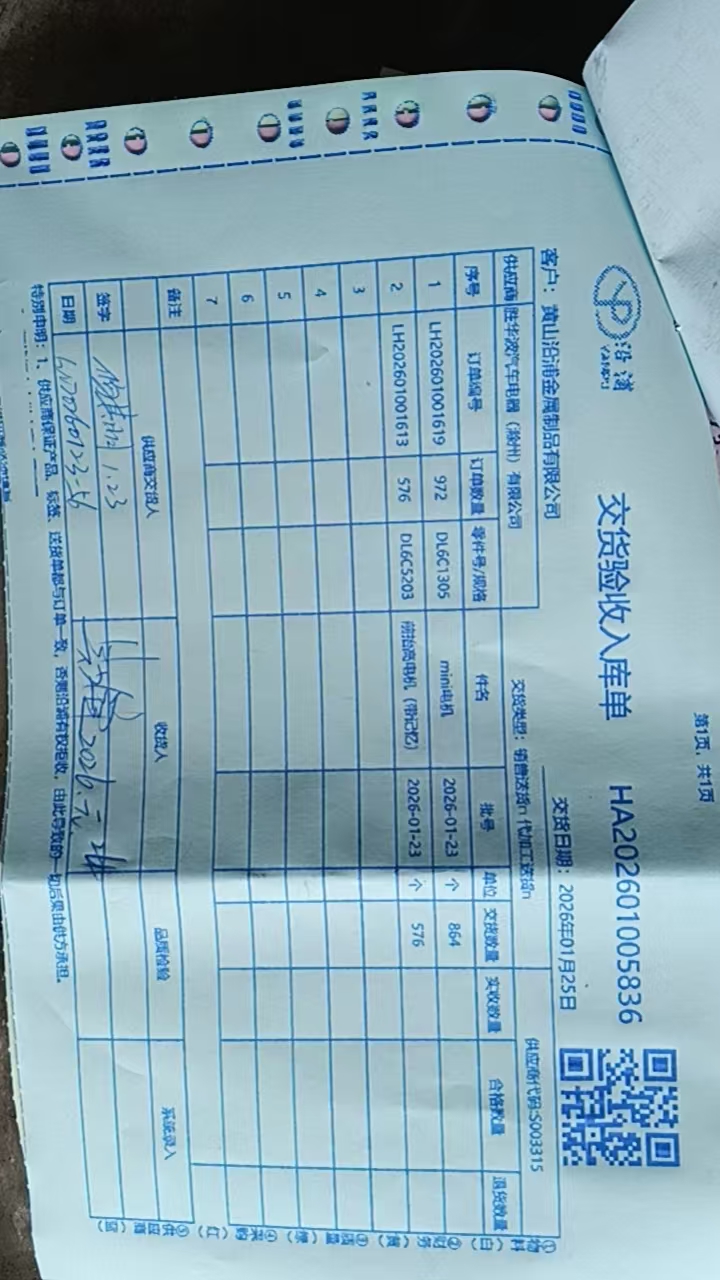 第1页, 共1页
沿浦
YANPU
交货验收入库单
HA202601005836
客户：黄山沿浦金属制品有限公司
交货日期：2026年01月25日
供应商 胜华波汽车电器（滁州）有限公司 交货类型：销售送货n 代加工送货n 供应商代码:S003315
序号 订单编号 订单数量 零件号/规格 件名 批号 单位 交货数量 实收数量 合格数量 退货数量
1 LH202601001619 972 DL6C1305 mini电机 2026-01-23 个 864
2 LH202601001613 576 DL6C5203 前抬高电机（带记忆） 2026-01-23 个 576
3
4
5
6
7
备注
供应商交货人 收货人 品质检验 系统录入
签字 1.23
日期
特别申明：1、供应商保证产品、标签、送货单都与订单一致，否则沿浦有权拒收，由此导致的一切后果由供方承担。
①物料（白）
②财务（黄）
④采购（红）
⑤供应商（蓝）